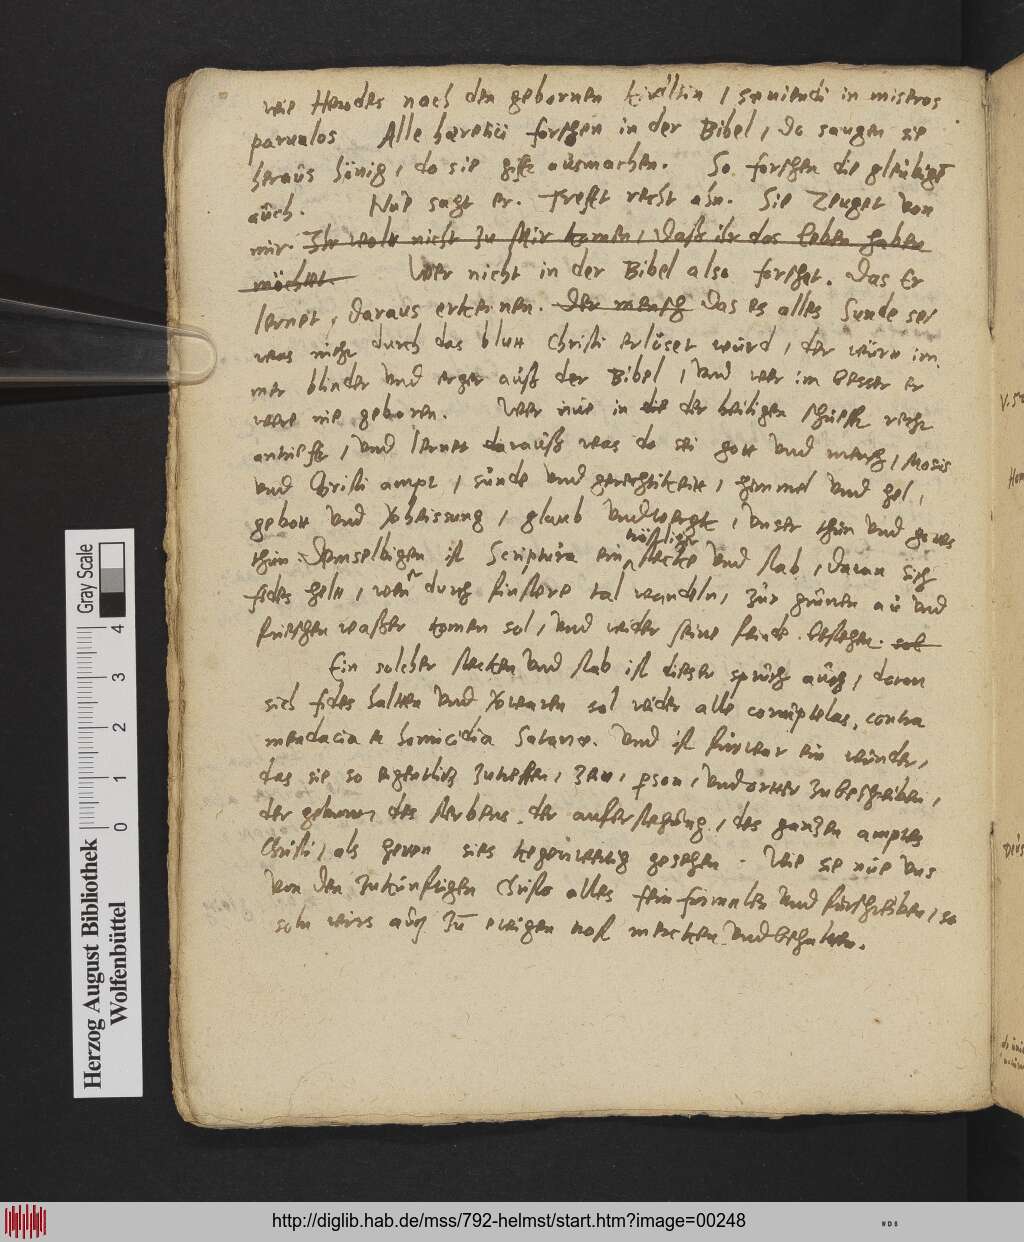 wie Herodes nach den gebornen kindlin / sæuiendi in miseros
paruulos Alle hæretici forschen in der Bibel / do saugen sie
heraüs hönig / do sie gifft aüsmachen. So forschen die gleübigē
aüch. Nue sagt er. Trefft recht ahn. Sie Zeuget von
mir. Ihr wolt nicht zu Mir komen / daß ihr das leben haben
möchtet. Wer nicht in der Bibel also forschet. das Er
lernet / daraus erkennen. Der mensch das es alles Sunde sei
was nicht durch das blutt Christi erlöset würd / der würd im
mer blinder vnd erger aüß der Bibel / vnd wer im besser er
were nie geboren. Wer nüe in die der heiligen schrifft recht
antrifft / vnd lernet darauß was do sei gott vnd mensch / Mosis
vnd Christi ampt / sünde vnd gerechtikeitt / himmel vnd hel /
gebott vnd Vorheissung / glaub vnd werck / vnser thun vnd gottes
thun. Demselbigen ist Scriptura ein
stecke vnd stab / daran sich
fides helt / wen durch finstere tal wandeln / zür grünen aü vnd
frischen waßer komen sol / vnd wider seine feinde bestehen. sol
Ein solcher stecken vnd stab ist dieser sprüch aüch / daran
sich fides halten vnd Vorwaren sol wider alle corruptelas, contra
mendacia et homicidia Satanæ. Vnd ist fürwar ein wünder /
das sie so eigentlich zutreffen / zeit / person / vnd ortter zubeschreiben /
der geburt, des sterbens, der aufferstehüng / des ganzen amptes
Christi / als hetten sies kegenwertig gesehen. Wie sie nüe vns
von den zukünfftigen Christo alles fein furmalen vnd fürschreiben / so
soln wirs aüch zu ewigen nost mercken vnd behalten.
Gray Scale
4
3
2
1
0
Herzog August Bibliothek
Wolfenbüttel
http://diglib.hab.de/mss/792-helmst/start.htm?image=00248